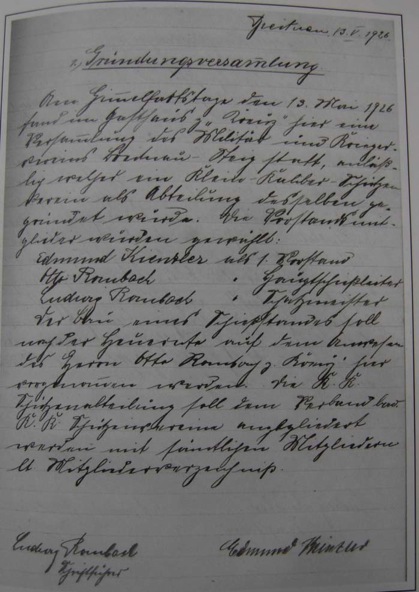 Breitnau, 13. V. 1926.
1.) Gründungsversammlung
Am Himmelfahrtstage den 13. Mai 1926
fand im Gasthaus z. "König" hier eine
Versammlung des Militär und Krieger-
vereins Breitnau-Steig statt, anläß-
lig welcher ein Klein-Kaliber-Schützen
verein als Abteilung desselben ge-
gründet wurde. Die Vorstandsmit-
glieder wurden gewählt:
Edmund Kienzler als 1. Vorstand
Otto Rombach " Hauptschießleiter
Ludwig Rombach " Schützmeister
Der Bau eines Schießstandes soll
nach der Heuernte auf dem Anwesen
des Herrn Otto Rombach z. König hier
vorgenommen werden. Die K. K.
Schützenabteilung soll dem Verband bad.
K. K. Schützenvereine angegliedert
werden mit sämtlichen Mitgliedern
lt Mitgliederverzeichniß.
Ludwig Rombach Edmund Kienzler
Schriftführer